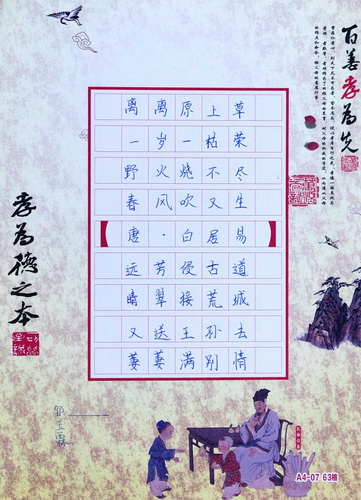 百善孝為先
离离原上草
一岁一枯荣
野火烧不尽
春风吹又生
唐·白居易
远芳侵古道
晴翠接荒城
又送王孙去
萋萋满别情
孝為德之本
A4-07 63格